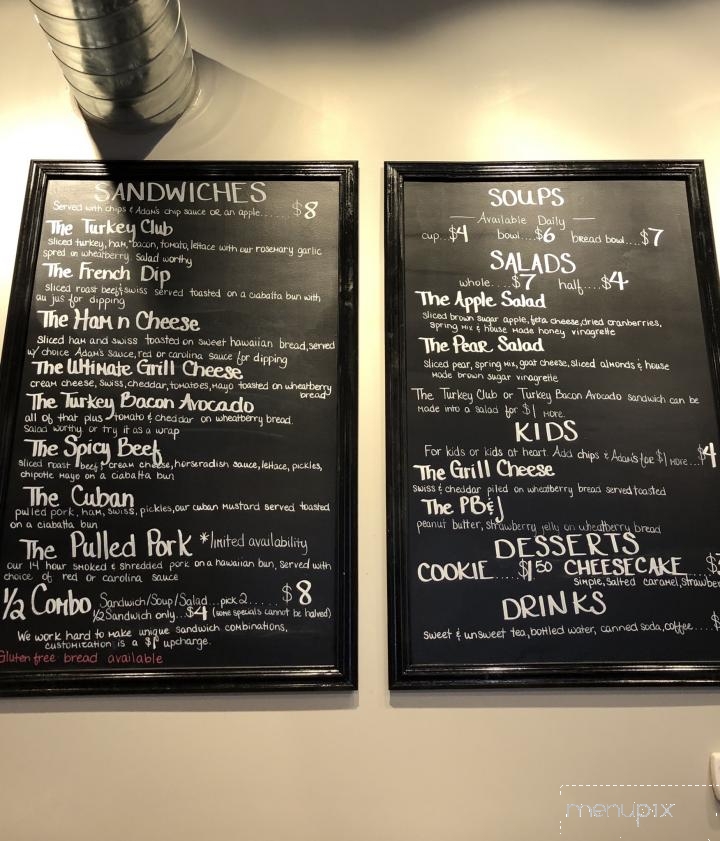 SANDWICHES
Served with chips & Adam's chip sauce OR an apple......$8
The Turkey Club
sliced turkey, ham, bacon, tomato, lettace with our rosemary garlic
spred on wheatberry. Salad worthy
The French Dip
sliced roast beef & swiss served toasted on a ciabatta bun with
au jus for dipping
The Ham n Cheese
sliced ham and swiss toasted on sweet hawaiian bread, served
w/ choice Adam's Sauce, red or carolina sauce for dipping
The Ultimate Grill Cheese
cream cheese, swiss, cheddar, tomatoes, mayo toasted on wheatberry
bread
The Turkey Bacon Avocado
all of that plus tomato & cheddar on wheatberry bread.
Salad worthy or try it as a wrap
The Spicy Beef
sliced roast beef, cream cheese, horseradish sauce, lettace, pickles,
chipotle mayo on a ciabatta bun
The Cuban
pulled pork, ham, swiss, pickles, our cuban mustard served toasted
on a ciabatta bun
The Pulled Pork *limited availability
our 14 hour smoked & shredded pork on a hawaiian bun, served with
choice of red or carolina sauce
1/2 Combo Sandwich/Soup/Salad...pick 2......$8
1/2 Sandwich only...$4 (some specials cannot be halved)
We work hard to make unique sandwich combinations,
customization is a $1 upcharge.
Gluten free bread available
SOUPS
Available Daily
cup..$4 bowl...$6 bread bowl...$7
SALADS
whole....$7 half....$4
The Apple Salad
sliced brown sugar apple, feta cheese, dried cranberries,
spring mix & house made honey vinagrette
The Pear Salad
sliced pear, spring mix, goat cheese, sliced almonds & house
made brown sugar vinagrette
The Turkey Club or Turkey Bacon Avocado sandwich can be
made into a salad for $1 more.
KIDS
For kids or kids at heart. Add chips & Adam's for $1 more...$4
The Grill Cheese
swiss & cheddar piled on wheatberry bread served toasted
The PB&J
peanut butter, strawberry jelly on wheatberry bread
DESSERTS
COOKIE....$1.50 CHEESECAKE
Simple, Salted caramel,
DRINKS
sweet & unsweet tea, bottled water, canned soda, coffee....
menupix